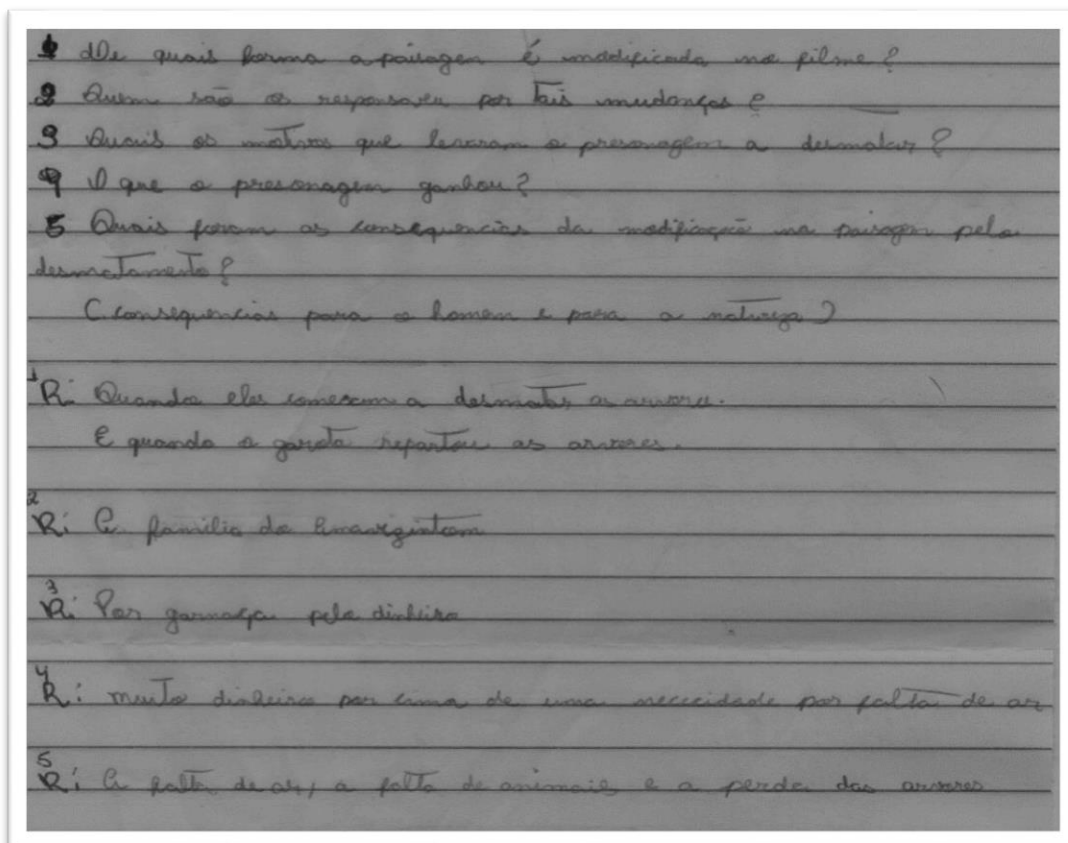 1 De quais forma a paisagen é modificada no filme?
2 Quem são os responsaveu por tais mudanças?
3 Quais os motivos que levaram o presonagem a desmatar?
4 O que o presonagem ganhou?
5 Quais foram as consequencias da modificação na paisagem pelo
desmatamento?
(consequencias para o homem e para a natureza)
1 R: Quando eles comecam a desmatar as arvore.
E quando o garoto as arvores.
2 R: A familia do
3 R: Por pelo dinheiro
4 R: muito dinheiro por cima de uma nececidade por falta de ar
5 R: A falta de ar, a falta de animais e a perda das arvores